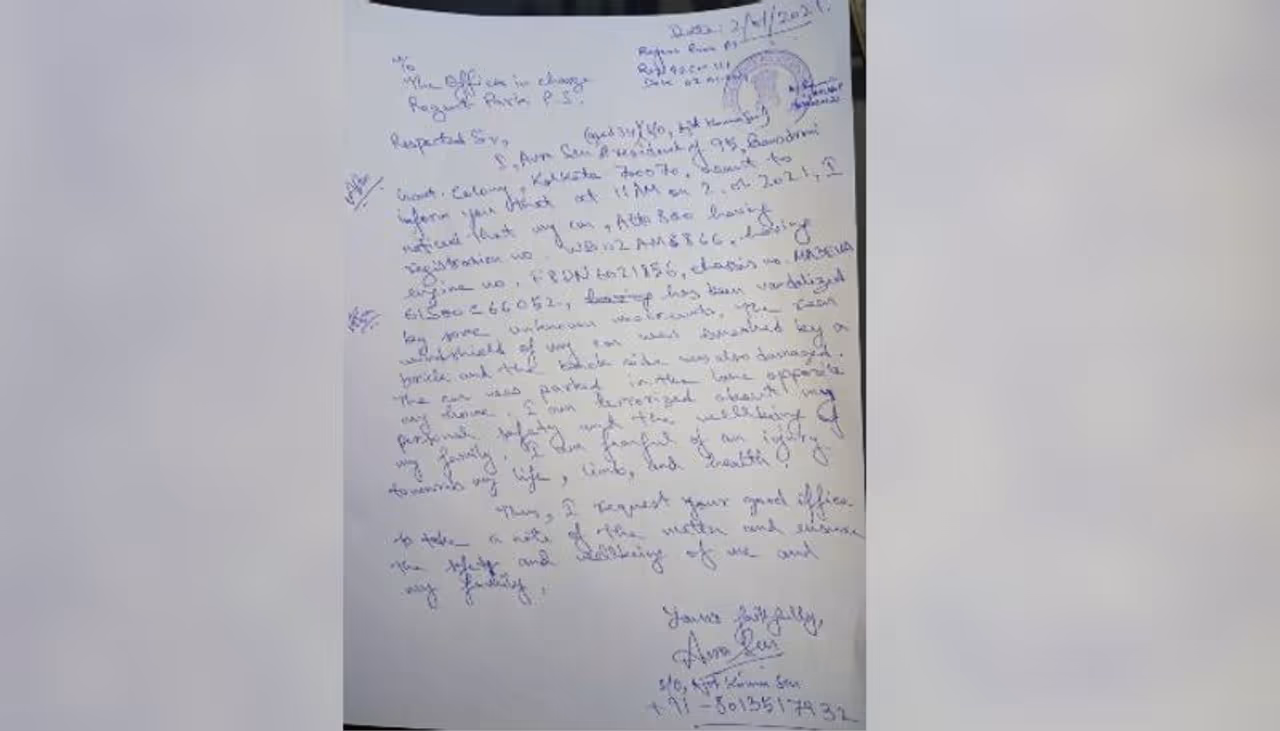 Date: 2/01/2021.
To
The Officer in charge
Regent Park P.S.
Regent Park PS
Date 02.01.2021
Respected Sir,
(aged 34) S/O, Ajit Kumar Sen)
I, Avra Sen A resident of 95, Bansdroni
Govt. Colony, Kolkata 700070, want to
inform you that at 11AM on 2.01.2021, I
noticed that my car, Alto 800 having
registration no. WB02AM8866, having
engine no. F8DN6021856, chassis no.
61S00C66052, having has been vandalized
by some unknown miscreants. The rear
windshield of my car was smashed by a
brick and the back side was also damaged.
The car was parked in the lane opposite
my house. I am terrorized about my
personal safety and the wellbeing of
my family. I am fearful of an injury
towards my life, limb, and health.
Thus, I request your good office
to take a note of the matter and ensure
the safety and wellbeing of me and
my family.
Yours faithfully,
Avra Sen
S/O, Ajit Kumar Sen
+91-8013517932